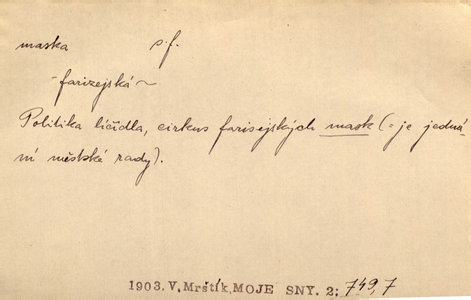 maska s.f.
-farizejská~
Politika líčidla, cirkus farisejských mask (= je jedná
ní městské rady).
1903. V. Mrštík, MOJE SNY. 2; 749,7